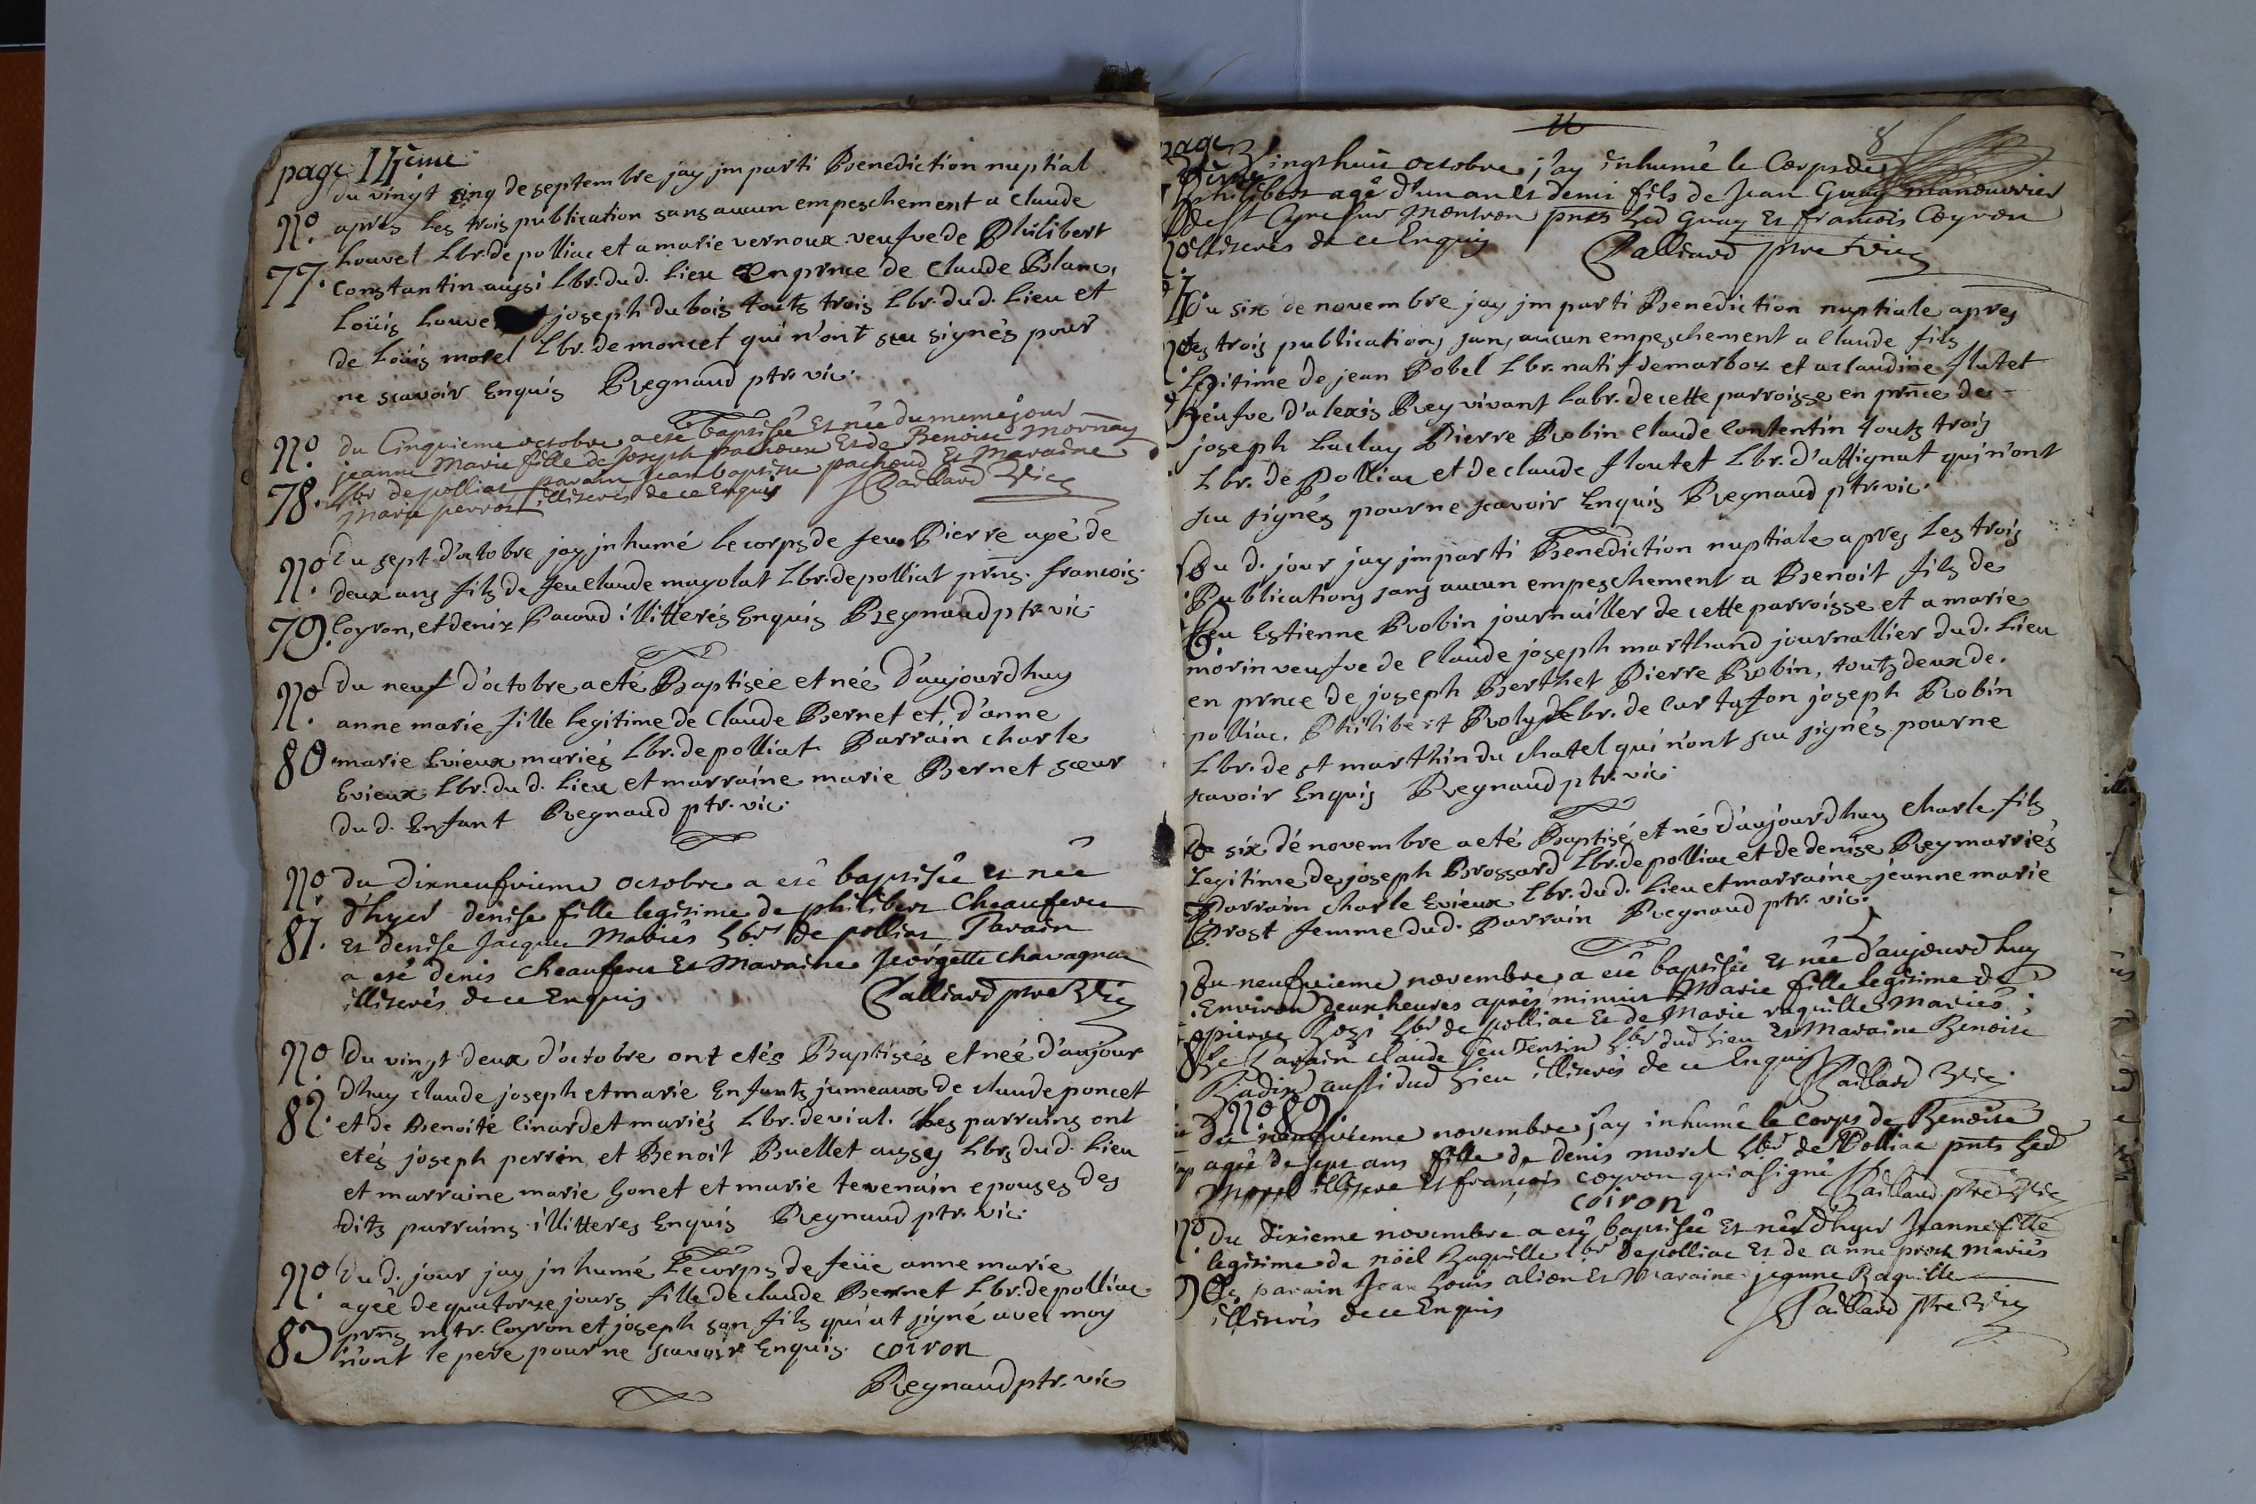 page 14ème
du vingt sinq de septembre jay jmparti Benediction nuptial
No. aprés les trois publication sans aucun empeschement a claude
louvel Lbr. de polliac et a marie vernoux veufve de Philibert
77. Constantin aussi Lbr. du d. Lieu en prnce de Claude Blanc,
Loüis Louve joseph dubois touts trois Lbr. du d. Lieu et
de Loüis morel Lbr. de moncet qui n'ont scu signés pour
ne scavoir Enquis Regnaud ptr. vic.
No. du Cinquieme octobre a eté baptisée Et née du meme jour
jeanne Marie fille de Joseph pachoux Et de Benoise Mornay
78. Lbr de polliac parain jean baptiste pachoud Et Maraine
Marie perrot illiterés de ce Enquis Paillard Vic
No. Du sept d'octobre jay jnhumé le corps de feu Pierre agé de
deux ans fils de feu Claude mayolat Lbr. de polliat prns. francois
79. Coyron, et denix Pacoud illitterés Enquis Regnaud ptr vic
No. Du neuf d'octobre a eté Baptisée et née D'aujourdhuy
anne marie fille legitime de Claude Bernet et d'anne
80 marie Evieux mariés Lbr. de polliat Parrain charle
Evieux Lbr. du d. Lieu et marraine marie Bernet sœur
du d. Enfant Regnaud ptr. vic.
No. du dixneufvieme octobre a eté baptisée Et née
d'hyer denise fille legitime de philibert Cheauferu
81. Et denise Jacquet Mariés Lbrs de polliat Parain
a eté denis Cheauferu Et Maraine Jeorgette chavagnat
illiterés de ce Enquis Palliard ptre Vic
No. Du vingt deux d'octobre ont etés Baptisés et née d'aujour
dhuy Claude joseph et marie Enfants jumeaux de claude poncett
82. et de Benoite linardet mariés Lbr. de vial. Les parrains ont
etés joseph perrin et Benoit Buellet aussy Lbrs du d. Lieu
et marraine marie Gonet et marie tevenain epouses des
dits parrains illitteres Enquis Regnaud ptr. vic.
No. Du d. jour jay jnhumé Le corps de feüe anne marie
ageé de quatorze jours fille de claude Bernet Lbr. de polliac
prns mtr. Coyron et joseph son fils qui at signé avec moy
83 n'ont le pere pour ne scavoir Enquis. coiron
Regnaud ptr. vic
page 8
Vingthuit octobre j'ay inhumé le Corps de
philibert agé d'un an Et demi fils de Jean Guay manouvrier
de St Cyre sur Mentron pnts led Guay Et francois Coyron
No illiterés de ce Enquis Palliard ptre Vic
Du six de novembre jay jmparti Benediction nuptiale apres
les trois publications sans aucun empeschement a Claude fils
Legitime de jean Bobel Lbr. natif de marboz et a claudine flutet
veufve d'alexis Rey vivant Labr. de cette parroisse en prnce de
joseph Luclay Pierre Robin Claude Contentin touts trois
Lbr. de Polliac et de claude floutet Lbr. d'attignat qui n'ont
scu signés pour ne scavoir Enquis Regnaud ptr. vic.
Du d. jour jay jmparti Benediction nuptiale apres les trois
Publications sans aucun empeschement a Benoit fils de
feu Estienne Robin journailler de cette parroisse et a marie
morin veufve de Claude joseph marthand journallier du d. Lieu
en prnce de joseph Berthet Pierre Robin, touts deux de
polliac. Philibert Roly Lbr. de Curtafon joseph Robin
Lbr. de st marthin du chatel qui n'ont scu signés pour ne
scavoir Enquis Regnaud ptr. vic.
De six dé novembre a eté Baptisé et né d'aujourdhuy Charle fils
Legitime de joseph Brossard Lbr. de polliac et de denise Rey marriés
Parrain charle Evieux Lbr. du d. Lieu et marraine jeanne marie
Prost femme du d. Parrain Regnaud ptr. vic.
Du neufvieme novembre a eté baptisée Et née d'aujourd huy
Environ deux heures aprés minuit Marie fille legitime de
pierre Lbr de polliac Et de Marie raquille Mariés
Le Parain claude Lbr dud Lieu Et Maraine Benoise
aussi dud Lieu illiterés de ce Enquis Paillard Vic
No 89.
Du neufvieme novembre j'ay inhumé le corps de Benoise
agée de sept ans fille de denis morel Lbr de Polliac pnts led
Morel illitere Et françois coyron qui a signé Paillard ptre Vic
coiron
No. Du dixieme novembre a eté baptisée Et née d'hyer Jeanne fille
legitime de nöel Raquille Lbr de polliac Et de anne prost mariés
90. parain Jean Louis alion Et Maraine jeanne Raquille
illiterés de ce Enquis Paillard ptre Vic